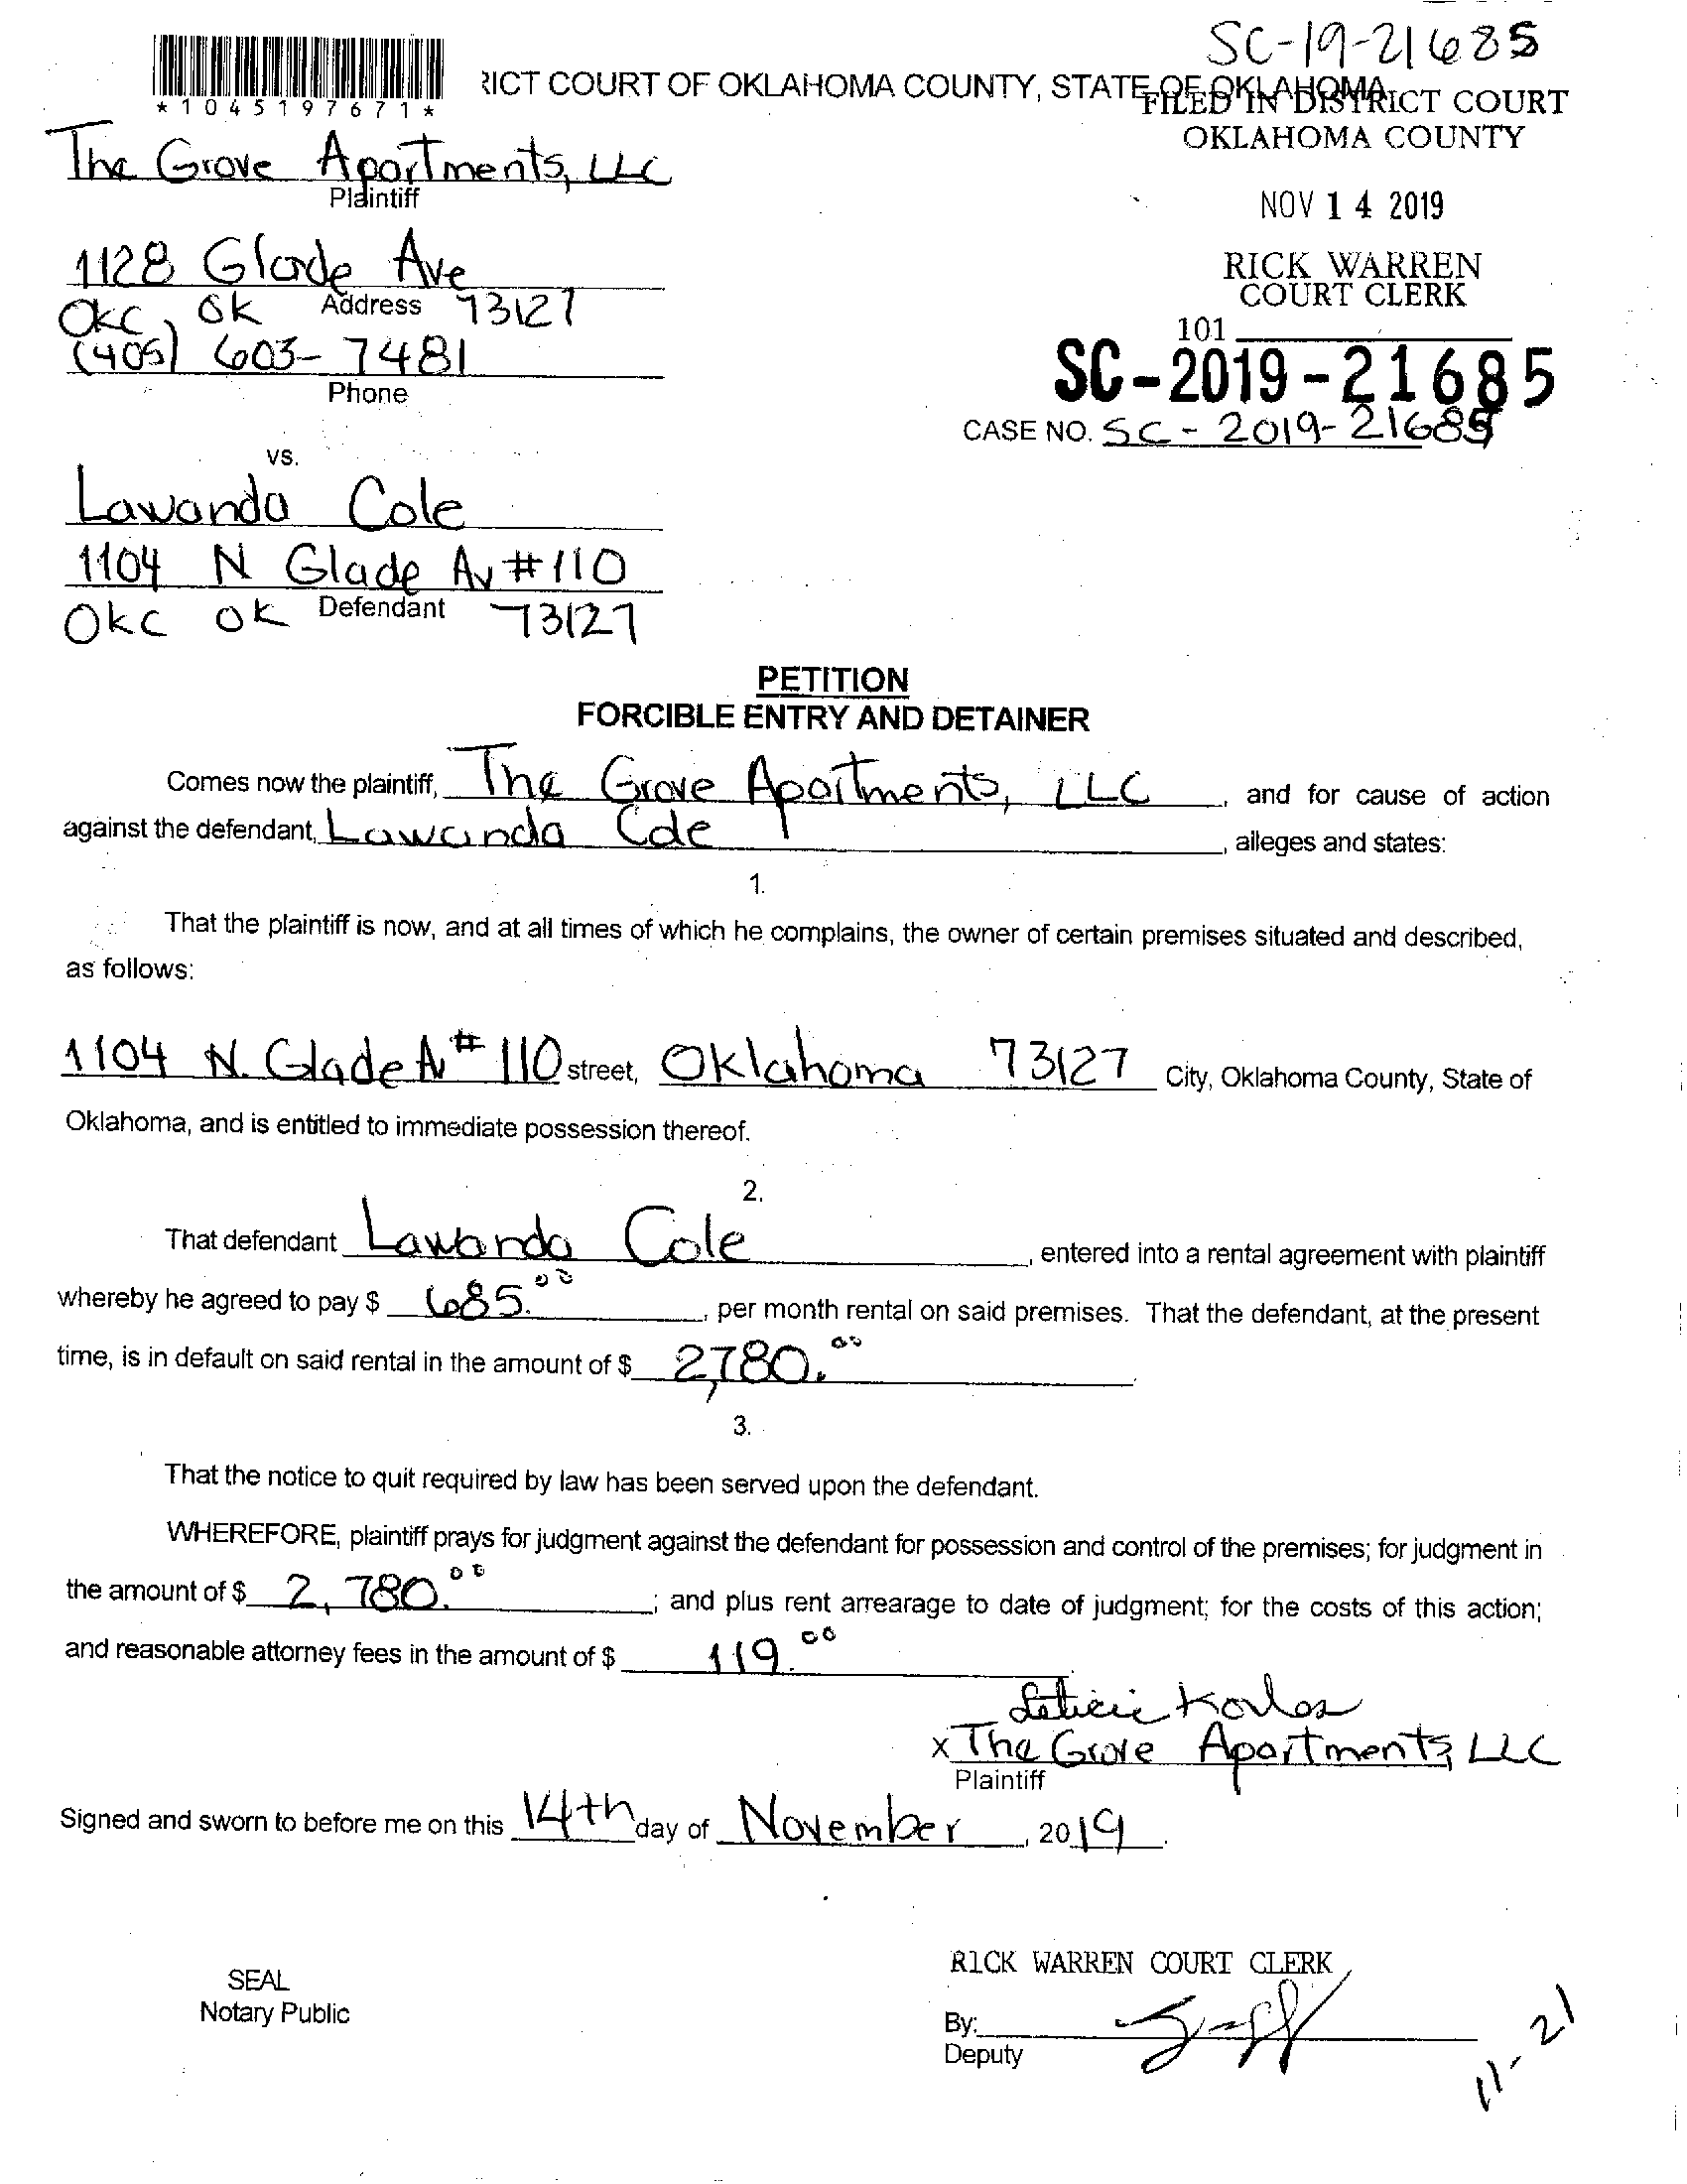 SC-19-21685
RICT COURT OF OKLAHOMA COUNTY, STATE OF OKLAHOMA
FILED IN DISTRICT COURT
OKLAHOMA COUNTY
*1045197671*
The Grove Apartments, LLC
Plaintiff
NOV 14 2019
1128 Glade Ave
Address
OKC, OK 73127
RICK WARREN
COURT CLERK
101
(405) 603-7481
Phone
SC-2019-21685
CASE NO. SC-2019-21685
vs.
Lawanda Cole
1104 N Glade Av #110
Defendant
OKC OK 73127
PETITION
FORCIBLE ENTRY AND DETAINER
Comes now the plaintiff, The Grove Apartments, LLC, and for cause of action
against the defendant, Lawanda Cole, alleges and states:
1.
That the plaintiff is now, and at all times of which he complains, the owner of certain premises situated and described,
as follows:
1104 N. Glade Av #110 street, Oklahoma 73127 City, Oklahoma County, State of
Oklahoma, and is entitled to immediate possession thereof.
2.
That defendant Lawanda Cole, entered into a rental agreement with plaintiff
whereby he agreed to pay $ 685.00, per month rental on said premises. That the defendant, at the present
time, is in default on said rental in the amount of $ 2,780.00
3.
That the notice to quit required by law has been served upon the defendant.
WHEREFORE, plaintiff prays for judgment against the defendant for possession and control of the premises; for judgment in
the amount of $ 2,780.00; and plus rent arrearage to date of judgment; for the costs of this action;
and reasonable attorney fees in the amount of $ 119.00
x The Grove Apartments, LLC
Plaintiff
Signed and sworn to before me on this 14th day of November, 2019.
RICK WARREN COURT CLERK
SEAL
Notary Public
By:
Deputy
11-21